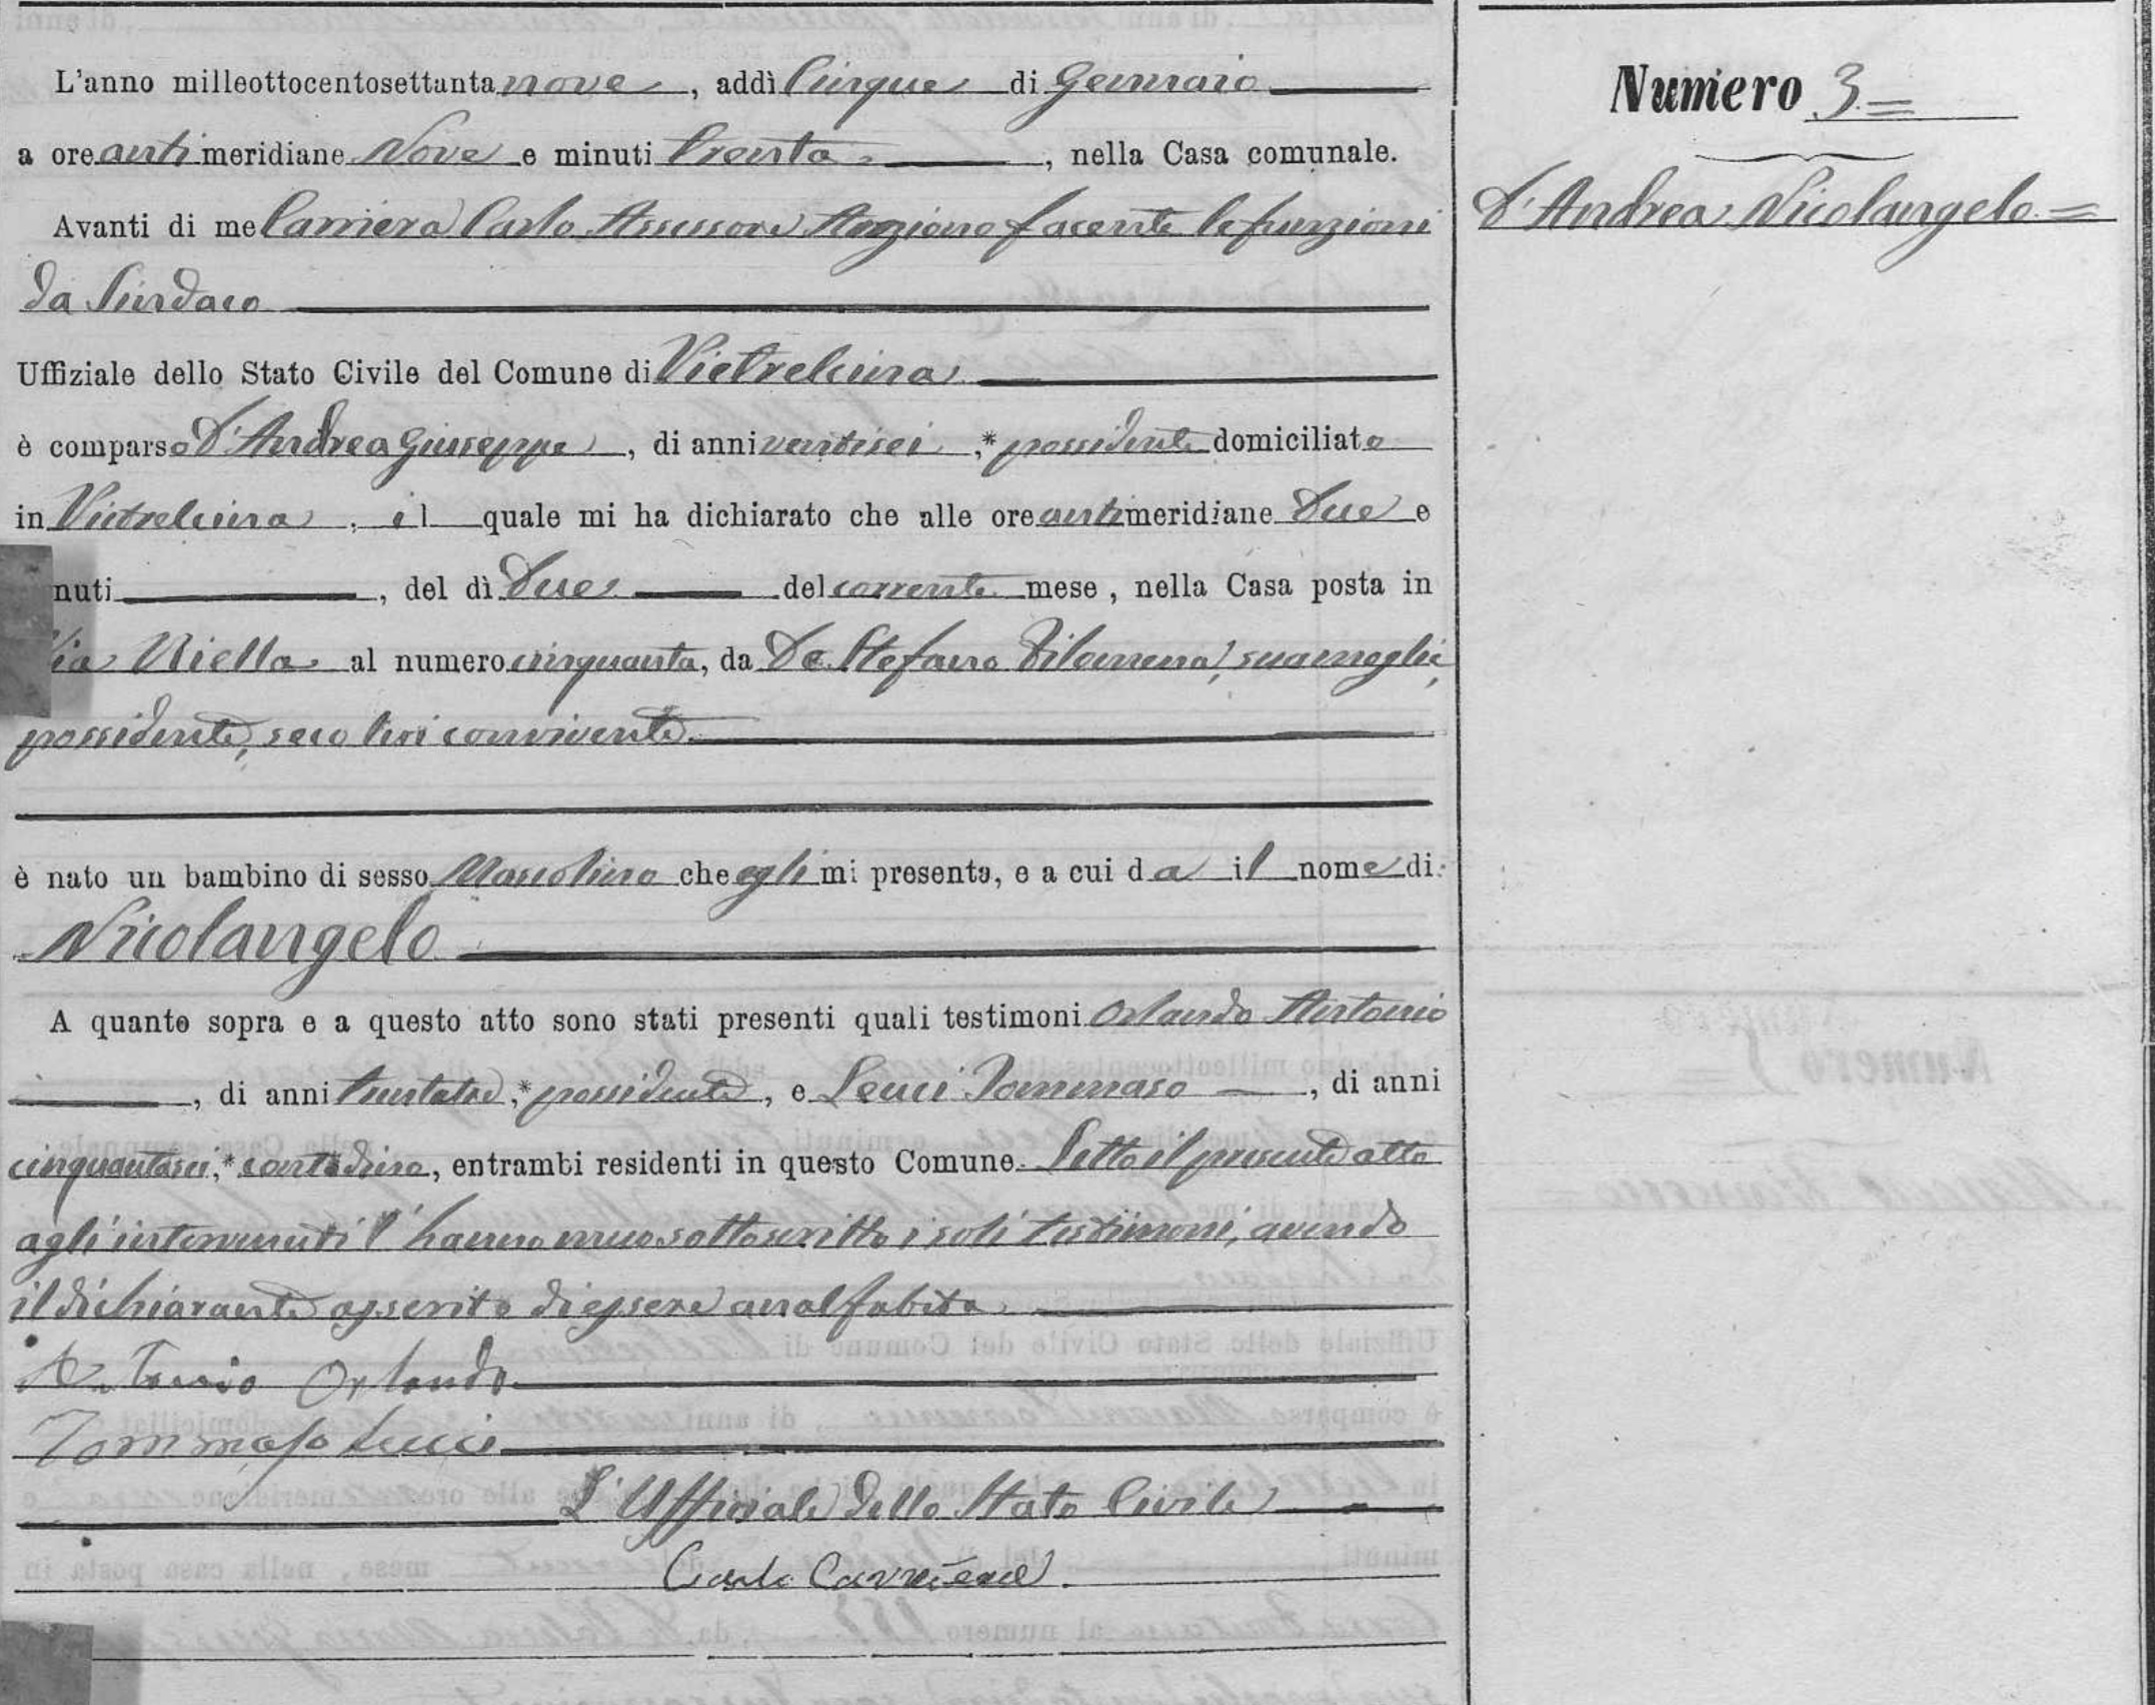 L'anno milleottocentosettanta nove, addì Cinque di Gennaio
a ore antimeridiane Nove e minuti trenta, nella Casa comunale.
Avanti di me Carriera Carlo Assessore Anziano facente le funzioni
da Sindaco
Uffiziale dello Stato Civile del Comune di Pietrelcina
è comparso D'Andrea Giuseppe, di anni ventisei, * possidente domiciliato
in Pietrelcina, il quale mi ha dichiarato che alle ore antimeridiane Due e
nuti, del dì Due del corrente mese, nella Casa posta in
Via al numero cinquanta, da De Stefano Filomena, sua moglie,
possidente, seco lui convivente.
è nato un bambino di sesso Mascolino che egli mi presenta, e a cui da il nome di
Nicolangelo
A quanto sopra e a questo atto sono stati presenti quali testimoni Orlando Antonio
, di anni * possidente, e Leuci Tommaso, di anni
cinquantasei, * contadino, entrambi residenti in questo Comune. Letto il presente atto
agli intervenuti l'hanno meco sottoscritto i soli testimoni, avendo
il dichiarante asserito di essere analfabeta.
Antonio Orlando
Tommaso Leuci
L'Uffiziale dello Stato Civile
Carlo Carriera
Numero 3
D'Andrea Nicolangelo